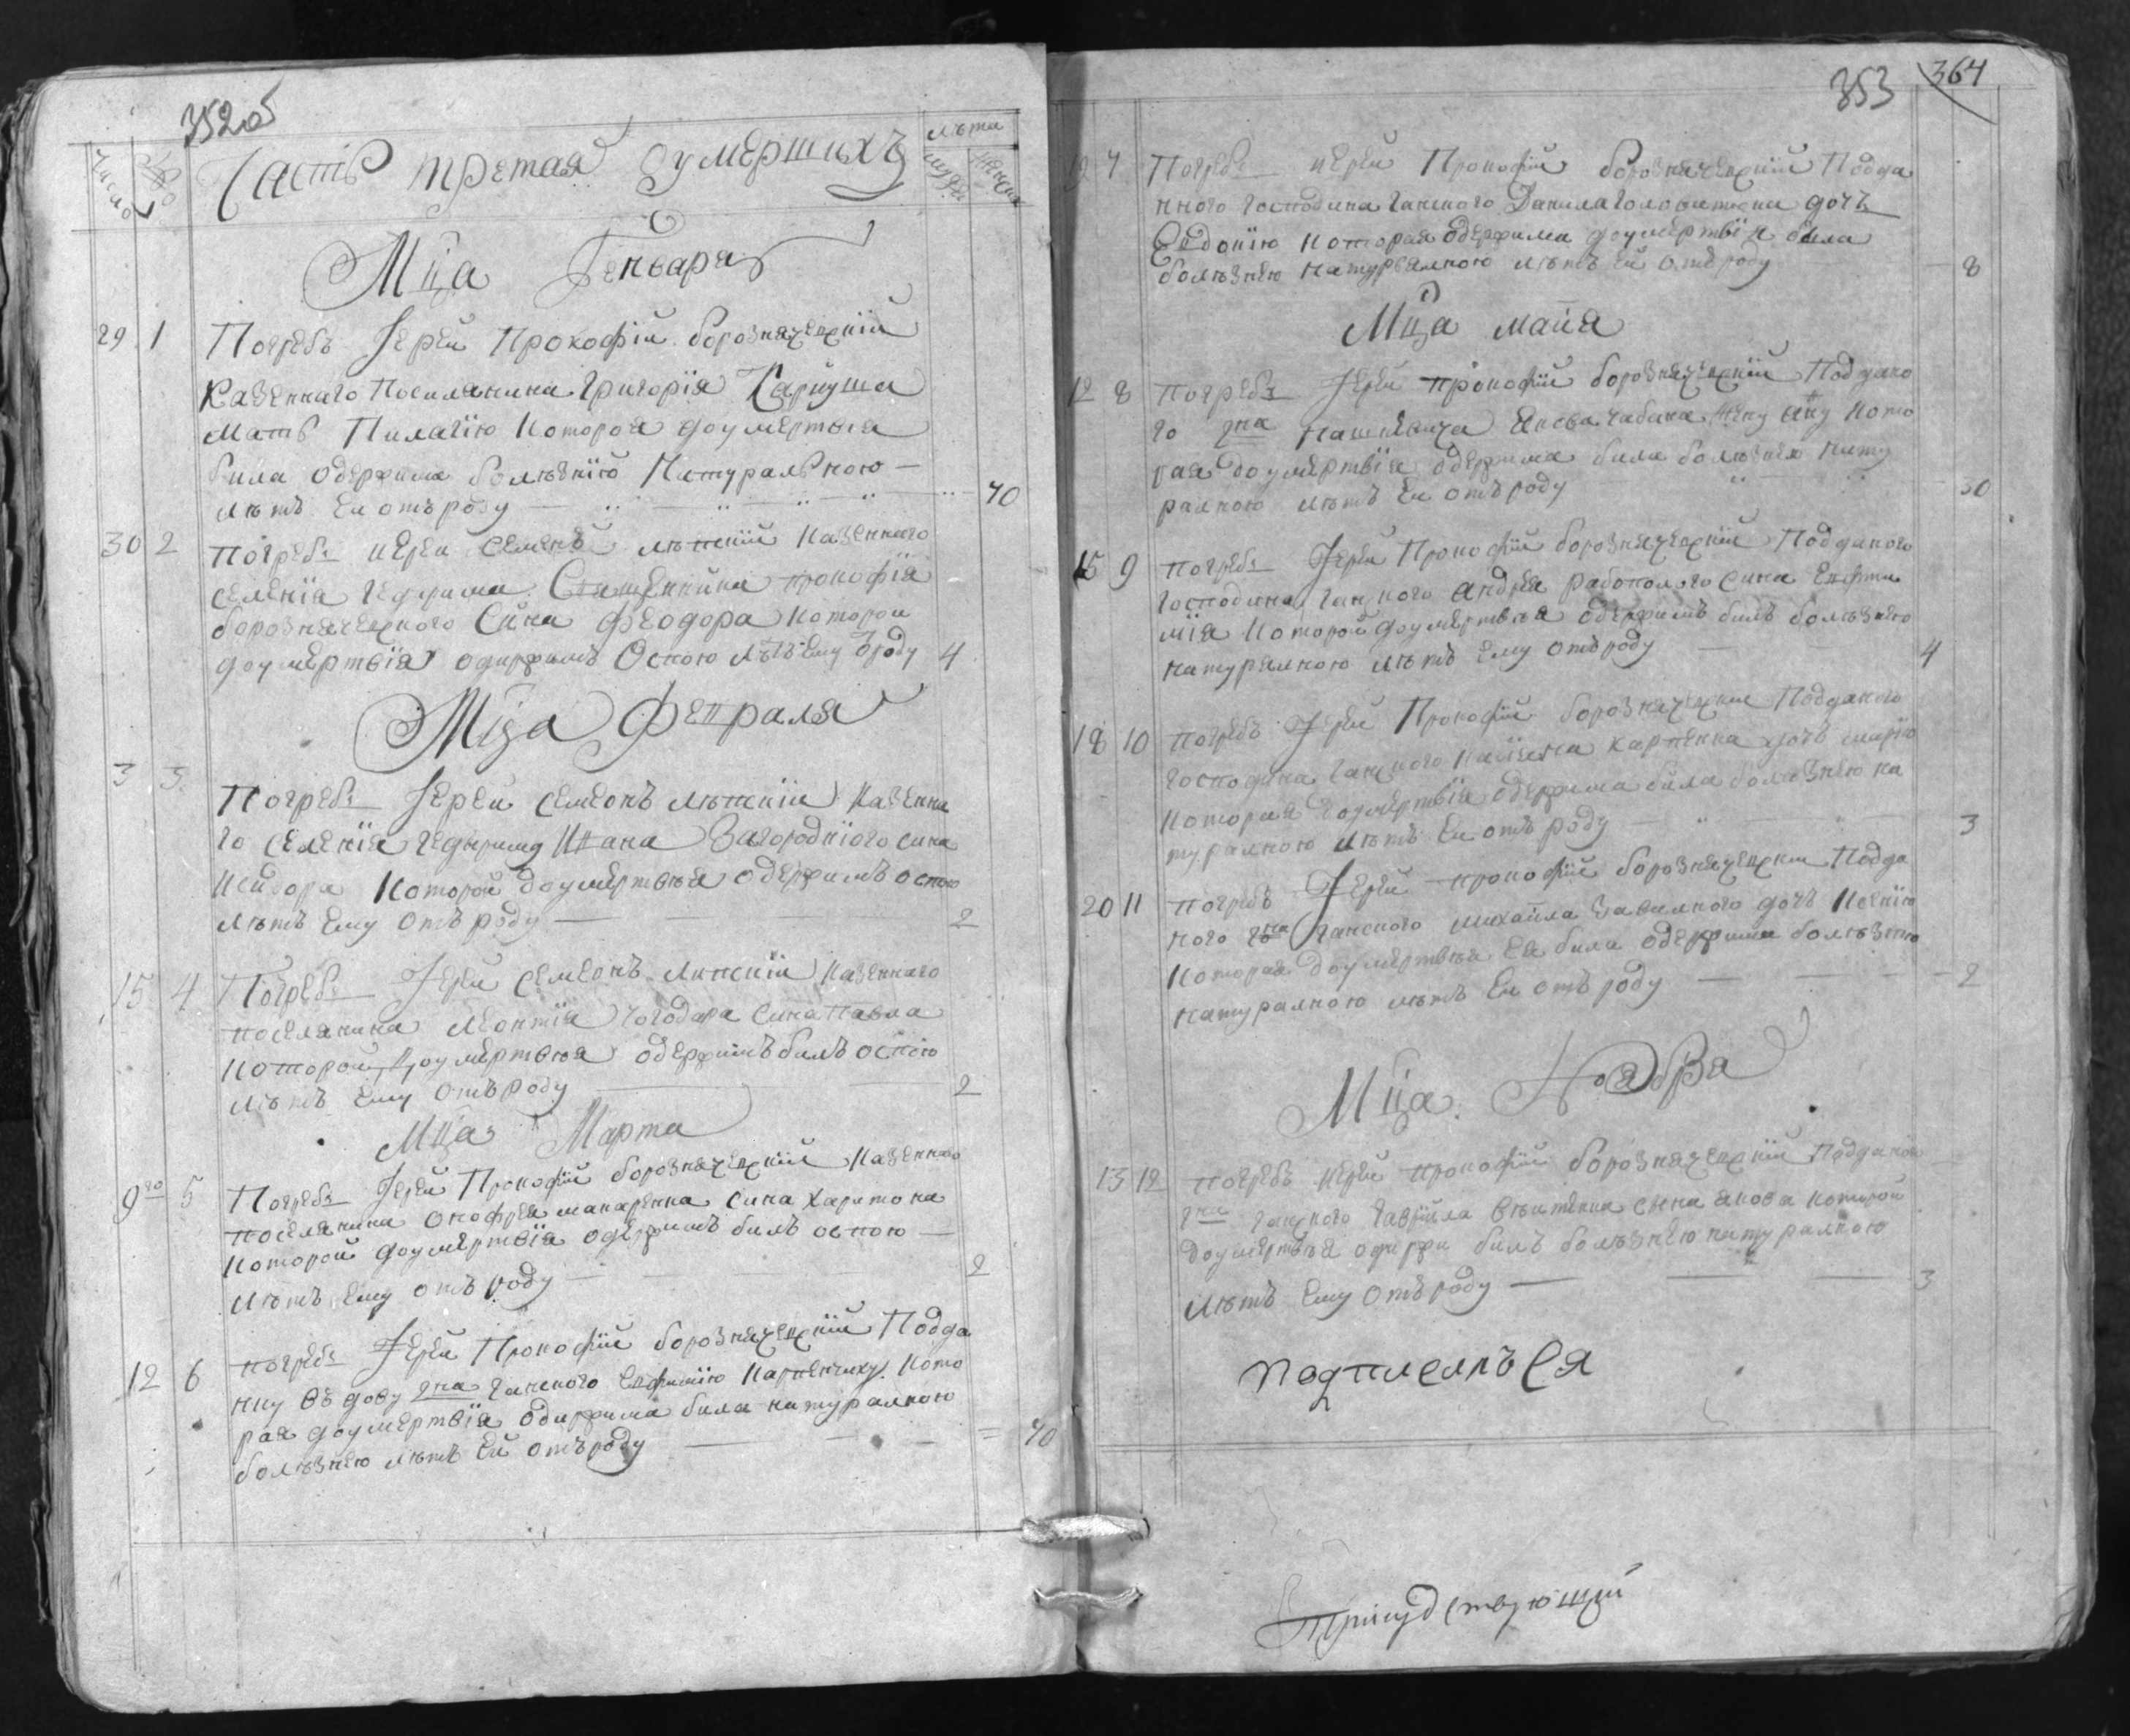 352об
Часть третая Оумершихъ
лѣта
Число
Мца Генъваря
29 1 Погребъ Іерей Прокофій борознячевскій
Казеннаго Поселянина Григорія
Мать Пилагію которая доумертвія
била одержима болѣзнію Натуралною
лѣтъ Ей отъроду 70
30 2 Погребъ иерей Семенъ казеннаго
селенія Священника прокофія
борознячевского Сина феодора которой
доумертвія одержимъ Оспою лѣтъ Ему Ѿроду 4
Мца февраля
3 3 Погребъ Іерей Семеонъ Казенна
го селенія Ивана Загороднюго сина
Исидора Которой доумертвія одержимъ оспою
лѣтъ Ему отъроду 2
15 4 Погребъ Іерей Семеонъ Казеннаго
поселянина Леонтія Сина Павла
Которой Доумертвія одержимъ билъ оспою
лѣтъ Ему отъроду 2
Мца Марта
9го 5 Погребъ Іерей Прокофій борознячевскій Казеннаго
поселянина Онофрея макаренка Сина Харитона
Которой доумертвія одержимъ билъ оспою
лѣтъ Ему отъ роду 2
12 6 погребъ Іерей Прокофій борознячевскій Подда
нну въдову гна Ганского Евфимію Карпенчиху Кото
рая доумертвія одержима била натуралною
болѣзнею лѣтъ Ей отъроду 70
353 364
7 Погребъ иерей Прокофій борознячевскій Подда
нного Господина Ганского Данила дочъ
Евдокію которая одержима доумертвія била
болѣзнею натуралною лѣтъ Ей отъроду 8
Мца маия
12 8 Погребъ Іерей прокофій борознячевскій Поддано
го гна Якова Чабана жену Ану Кото
рая доумертвія одержима била болѣзнею нату
ралною лѣтъ Ей отъроду 30
15 9 погребъ Іерей Прокофій борознячевскій Подданого
Господина Ганского андрея сина Евфи
мія которой доумертвія одержимъ билъ болѣзнею
натуралною лѣтъ Ему отъроду 4
18 10 погребъ Іерей Прокофій борознячевскій Подданого
Господина Ганского карпенка дочъ марію
Которая доумертвія одержима била болѣзнею на
туралною лѣтъ Ей отъ роду 3
20 11 погребъ Іерей прокофій борознячевскій Подда
ного гна Ганского михаила дочъ Ксенію
Которая доумертвія Ея била одержима болѣзнею
натуралною лѣтъ Ей отъ роду 2
Мца Ноября
13 12 погребъ Иерей прокофій борознячевскій Подданого
гна Ганского Гаврила сина Якова которой
доумертвія одержи билъ болѣзнею натуралною
лѣтъ Ему отъроду 3